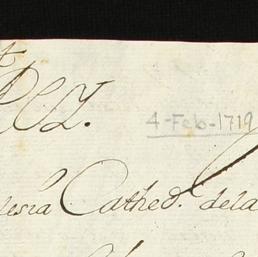 Rey.
4-Feb-1719
lesia Cathed.l dela